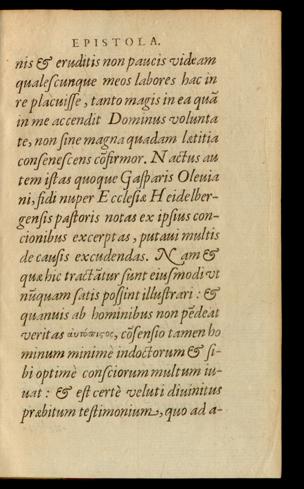 EPISTOLA.
nis & eruditis non paucis videam
qualescunque meos labores hac in
re placuisse, tanto magis in ea quã
in me accendit Dominus volunta
te, non sine magna quadam lætitia
consenescens cõfirmor. Nactus au
tem istas quoque Gasparis Oleuia
ni, fidi nuper Ecclesiæ Heidelber-
gensis pastoris notas ex ipsius con-
cionibus excerptas, putaui multis
de causis excudendas. Nam &
quæ hic tractãtur sunt eiusmodi vt
nũquam satis possint illustrari: &
quanuis ab hominibus non pẽdeat
veritas αὐτόπιςος, cõsensio tamen ho
minum minimè indoctorum & si-
bi optimè consciorum multum iu-
uat: & est certè veluti diuinitus
præbitum testimonium, quo ad a-